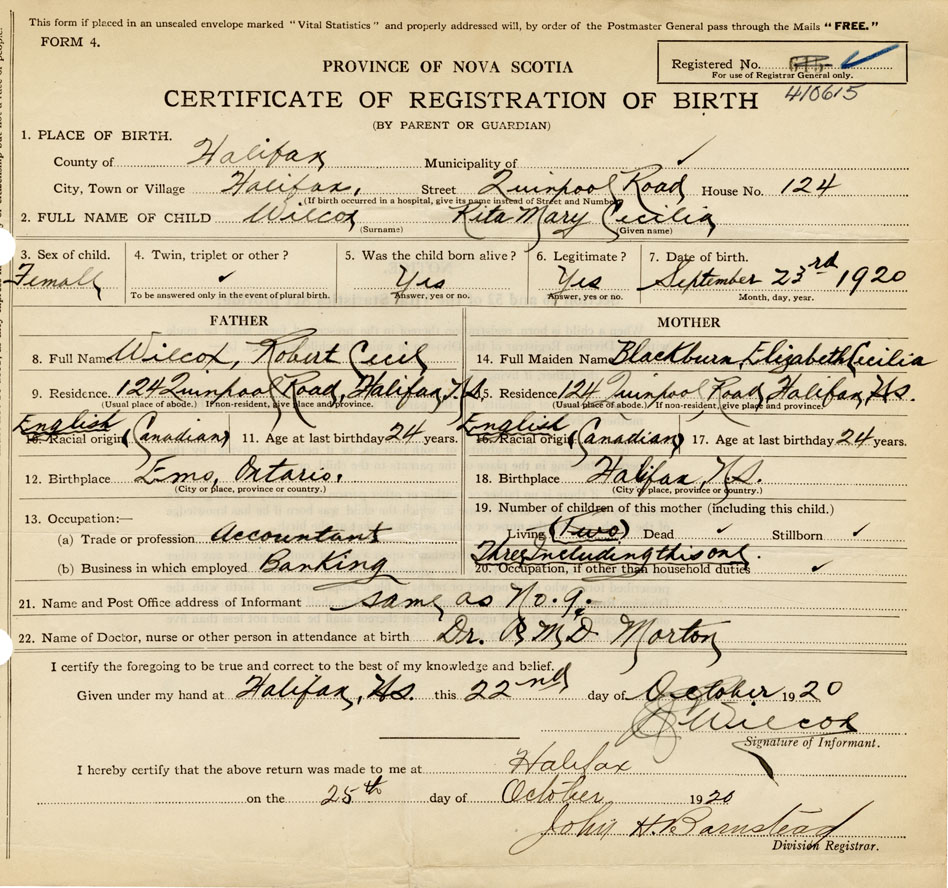 This form if placed in an unsealed envelope marked "Vital Statistics" and properly addressed will, by order of the Postmaster General pass through the Mails "FREE."
FORM 4.
Registered No.
For use of Registrar General only.
410615
PROVINCE OF NOVA SCOTIA
CERTIFICATE OF REGISTRATION OF BIRTH
(BY PARENT OR GUARDIAN)
1. PLACE OF BIRTH.
County of Halifax Municipality of ✓
City, Town or Village Halifax, Street Quinpool Road House No. 124
(If birth occurred in a hospital, give its name instead of Street and Number)
2. FULL NAME OF CHILD Wilcox Rita Mary Cecilia
(Surname) (Given name)
3. Sex of child. 4. Twin, triplet or other? 5. Was the child born alive? 6. Legitimate? 7. Date of birth.
Female ✓ Yes Yes September 23rd 1920
To be answered only in the event of plural birth. Answer, yes or no. Answer, yes or no. Month, day, year.
FATHER MOTHER
8. Full Name Wilcox, Robert Cecil 14. Full Maiden Name Blackburn, Elizabeth Cecilia
9. Residence. 124 Quinpool Road, Halifax, N.S. 15. Residence 124 Quinpool Road, Halifax, N.S.
(Usual place of abode.) If non-resident, give place and province. (Usual place of abode.) If non-resident, give place and province.
English English
10. Racial origin (Canadian) 11. Age at last birthday 24 years. 16. Racial origin (Canadian) 17. Age at last birthday 24 years.
12. Birthplace Emo, Ontario. 18. Birthplace Halifax, N.S.
(City or place, province or country.) (City or place, province or country.)
19. Number of children of this mother (including this child.)
13. Occupation:—
(a) Trade or profession Accountant Living (Two) Dead ✓ Stillborn ✓
Three Including this one
(b) Business in which employed Banking 20. Occupation, if other than household duties ✓
21. Name and Post Office address of Informant same as No. 9.
22. Name of Doctor, nurse or other person in attendance at birth Dr. R M D Morton
I certify the foregoing to be true and correct to the best of my knowledge and belief.
Given under my hand at Halifax, N.S. this 22nd day of October 1920
Wilcox
Signature of Informant.
I hereby certify that the above return was made to me at Halifax
on the 25th day of October 1920
John H. Barnstead
Division Registrar.